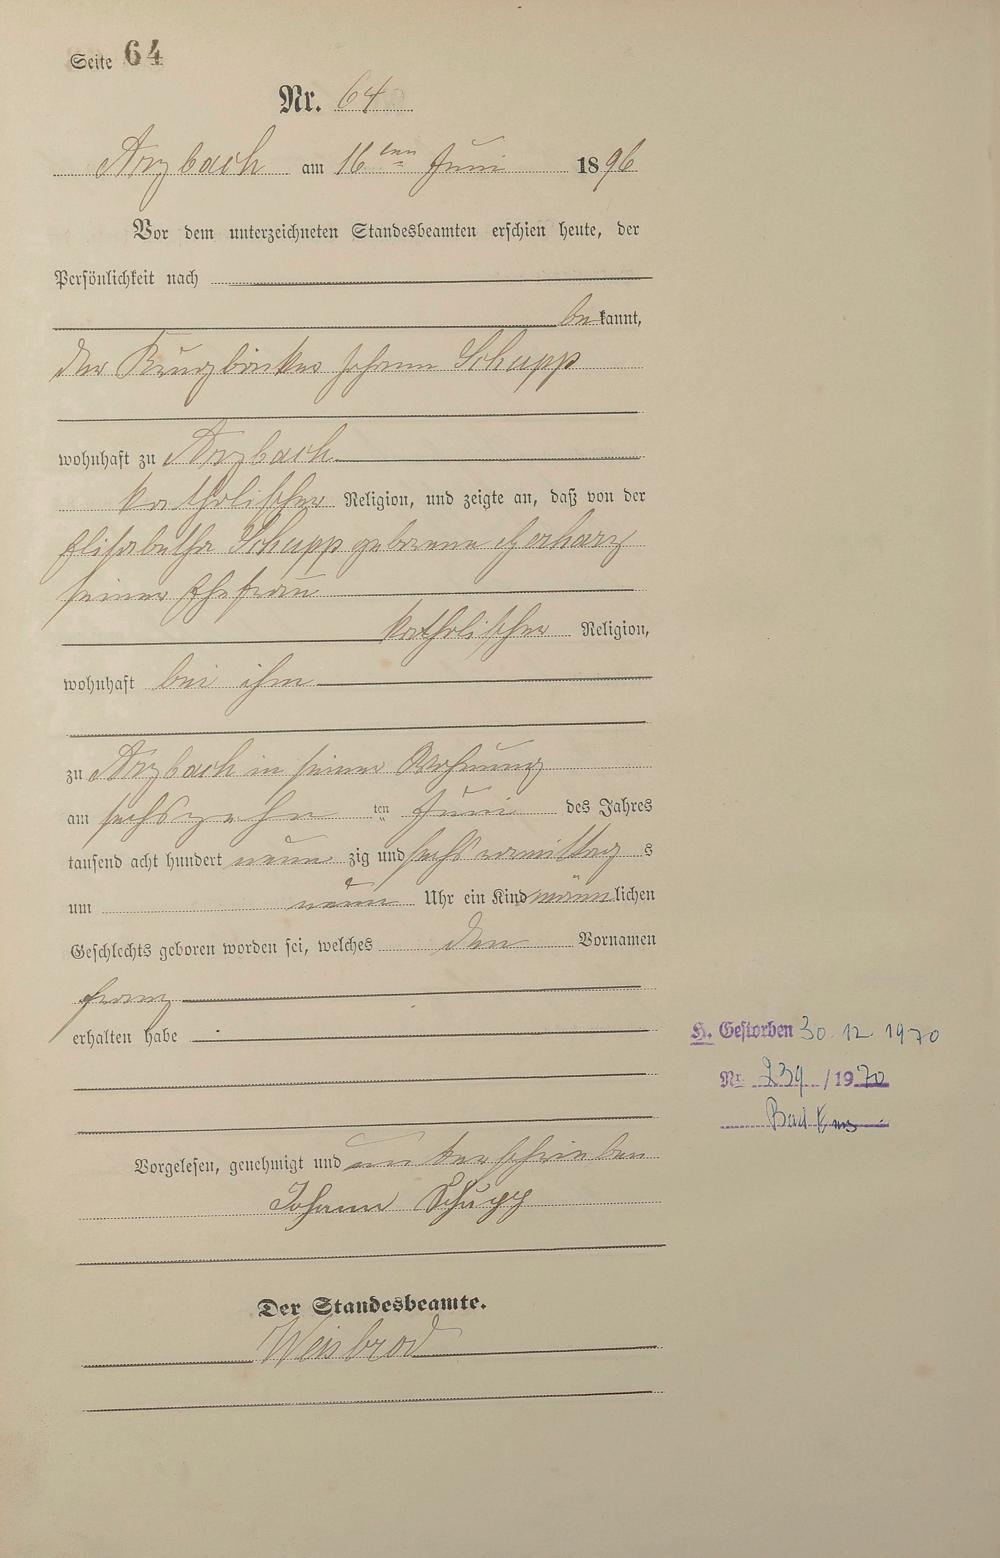 Seite 64
Nr. 64
Arzbach am 16ten Juni 1896
Vor dem unterzeichneten Standesbeamten erschien heute, der
Persönlichkeit nach
bekannt,
der Johann Schupp
wohnhaft zu Arzbach
katholischer Religion, und zeigte an, daß von der
Elisabetha Schupp geborene Gerharz
seiner Ehefrau
katholischer Religion,
wohnhaft bei ihm
zu Arzbach in seiner Wohnung
am sechszehn ten Juni des Jahres
tausend acht hundert neun zig und sechs vormittag s
um neun Uhr ein Kind männlichen
Geschlechts geboren worden sei, welches den Vornamen
Franz
erhalten habe
H. Gestorben 30.12.1970
Nr. 239/1970
Bad Ems
Vorgelesen, genehmigt und unterschrieben
Johann Schupp
Der Standesbeamte.
Weisbrod